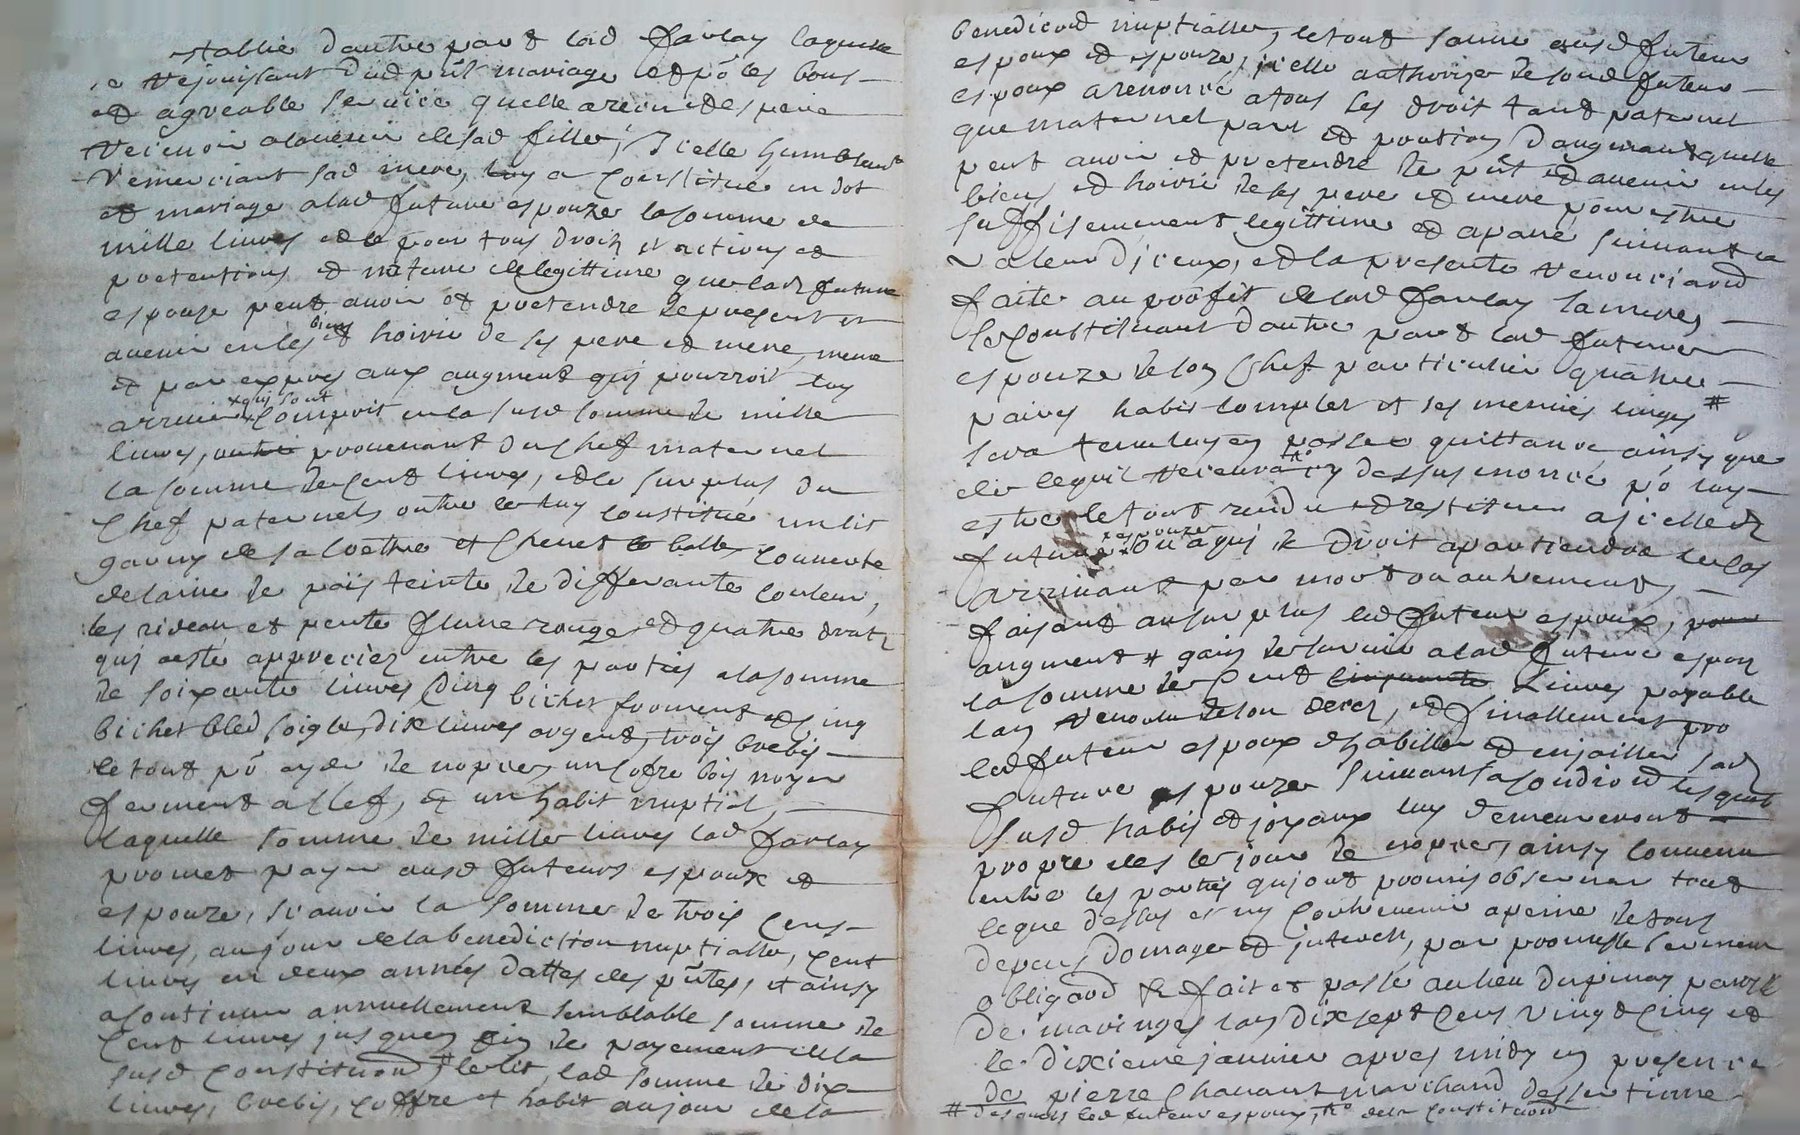 stablie d'autre part lad farlay laquelle
se rejouissant dud pñt mariage et pō les bons
et agreable service quelle a receu et espere
recevoir a lavenir de sad fille, Icelle humblemt
remerciant sad mere, luy a constitué en dot
et mariage a lad future espouze la somme de
mille livres et ce pour tous droitz et actions et
pretentions et nature de legittime que lad future
espouze peut avoir et pretendre de present et
avenir en les biens et hoirie de ses pere et mere, meme
et par expres aux augment quj pourroit luy
arriver x quj sont compris en la susd somme de mille
livres, provenant du chef maternel
la somme de cent livres, et le surplus du
chef paternel, outre ce luy constitue un lit
garny de sa coëttre et chevet balle couverte
de laine de païs teinte de differante couleur,
les rideau et pente flune rouge et quatre dratz
quj a esté appreciez entre les parties a la somme
de soixante livres Cinq bichet froment et cinq
bichet bled soigle, dix livres argent, trois brebis
le tout pō ayde de nopces un cofre bois noyer
fermant a clef, et un habit nuptial,
laquelle somme de mille livres lad farlay
promet payer ausd futeurs espoux et
espouze, scavoir la somme de trois cens
livres, au jour de la benediction nuptialle, cent
livres en deux années dattes des pñtes, et ainsy
a continuer annuellement semblable somme de
cent livres jusques fin de payement de la
susd constitu͞on, le lit, lad somme de dix
livres, brebis, coffre et habit au jour de la
benedicõn nuptialle, le tout comme ausd futeur
espoux et espouze, icelle authorize de sond futeur
espoux a renoncé a tous ses droit tant paternel
que maternel part et portion d'augmant quelle
peut avoir et pretendre de pñt et avenir en les
biens et hoirie de ses pere et mere pour estre
suffisemment legittime et apané suivant la
valeur d'iceux, et la presente renonciaõn
faite au proffit de lad farlay sa mere,
se constituant d'autre part lad future
espouze de son chef particulier quatre
paires habis complet et ses menües linges #
sera tenu luy en passer quittance ainsy que
de ce quil recevra # cy dessus enoncé pō luy
estre le tout rendu et restitue a icelle
future x espouze ou a quj de droit apartiendra le cas
arrivant par mort ou autrement,
faisant au surplus led futeur espoux,
augment & gain de survie a lad future espouz
la somme de cent livres payable
lan revolu de son decez, et finallement pro
led futeur espoux dhabiller et enjoailler sad
future espouze suivant sa condicion lesquels
susd habis et joyaux luy demeureront
propre des le jour de nopces ainsy convenu
entre les parties qujont promis observer tout
le que dessus et ny contrevenir a peine de tous
depens, domage et interest, par promesse serment
obligaõn &c fait et passé au lieu dupinay parr
de maringes lan dix sept cens vingt cinq et
le dixieme janvier apres midy en presence
de pierre chavant marchand
# desquels led futeur espoux, # de la constitu͞on